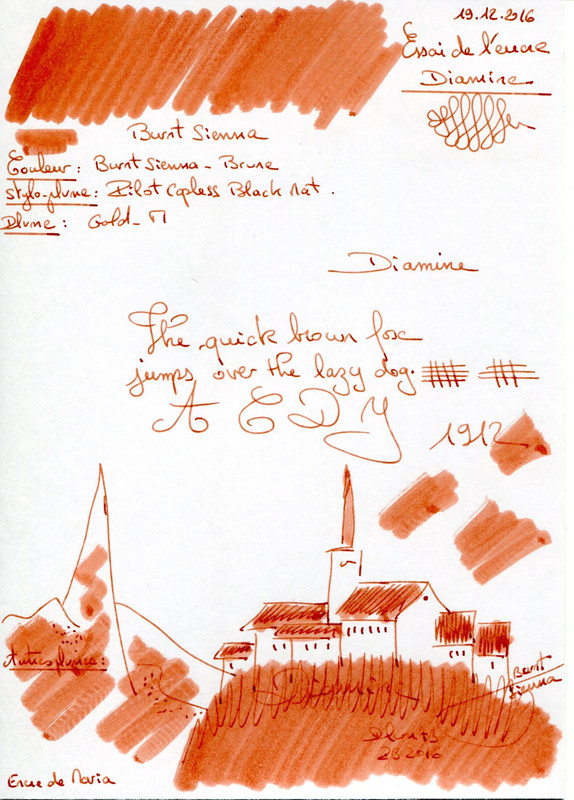 19.12.2016
Essai de l'encre
Diamine
Burnt Sienna
Couleur: Burnt Sienna - Brune
Stylo-plume: Pilot Capless Black Mat.
Plume: Gold - M
Diamine
The quick brown fox
jumps over the lazy dog.
A C D Y
1912
Autres
Diamine
Burnt
Sienna
2016
Encre de Maria